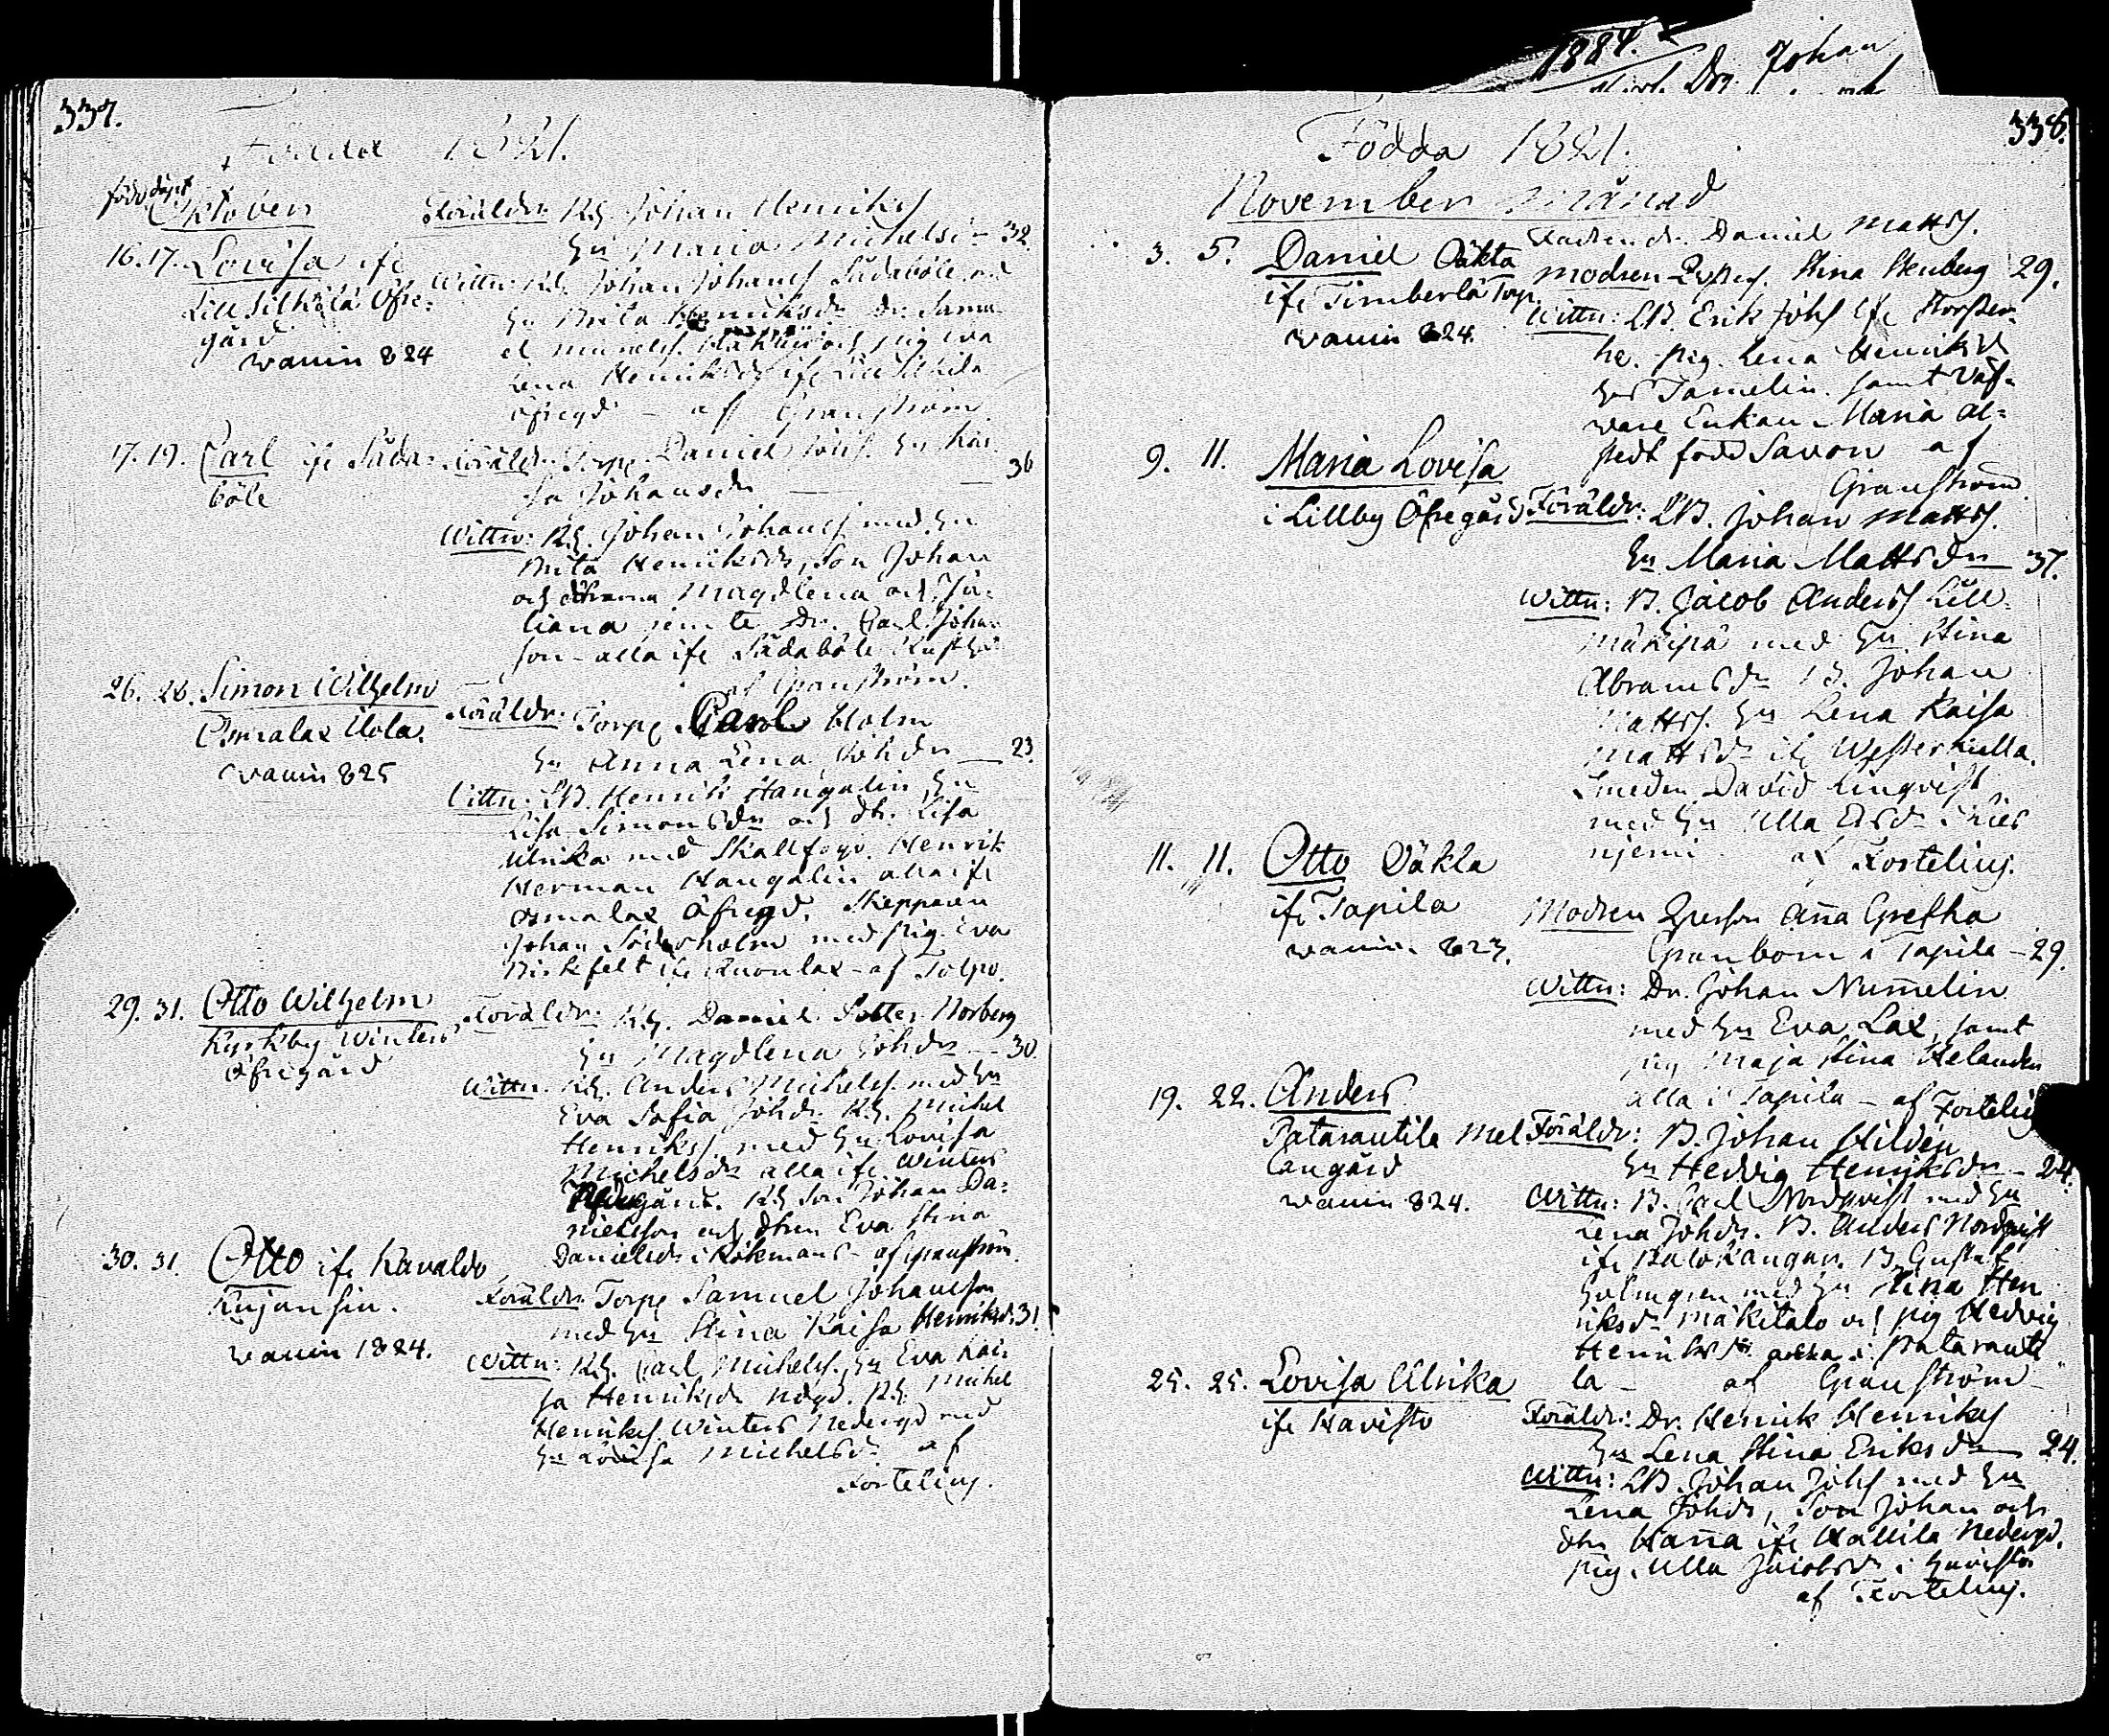 337.
Födda 1821.
född döpt
Oktober
16. 17. Lovisa ifr
Lill Silkilä Öfre-
gård
vaccin 824
Föräldr: Rh. Johan Henrikss
hu Maria Michelsdr 32.
Wittn: Rh. Johan Johanss Sådaböle
hu Brita Henriksdr Dr. Samu-
el
Lena Henriksdr ifr Lill Silkilä
Öfregd – af Granström.
17. 19. Carl ifr Såda-
böle
Föräldr: Torp. Daniel Johss hu Kai-
sa Johansdr — 36
Wittn: Rh. Johan Johanss med hu
Brita Henriksdr, Son Johan
och döttrarna Magdlena och Ju-
liana jemte Dr. Carl Johan-
son – alla ifr Sådaböle
af Granström.
26. 28. Simon Wilhelm
Osmalax Uola.
vaccin 825
Föräldr: Torp. Carl Holm
hu Anna Lena Johdr — 23.
Wittn: LB. Henrik Hangelin hu
Lisa Simonsdr och dtr. Lisa
Ulrika med Skallfogd. Henrik
Herman Hangelin alla ifr
Osmalax Öfregd. Skepparen
Johan Söderholm med pig. Eva
Birkfelt ifr Ruonlax – af Tolpo.
29. 31. Otto Wilhelm
Kyrkby Winters
Öfregård
Föräldr: Rh. Daniel Norberg
hu Magdlena Johdr – 30.
Wittn: Rh. Anders Michelss med hu
Eva Sofia Johdr. Rh. Michel
Henrikss med hu Lovisa
Michelsdr alla ifr Winters
Rh Son Johan Da-
nielsson och dtren Eva Stina
Danielsdr i Kökmans – af Granström.
30. 31. Otto ifr Kavaldo
Kujansiu.
vaccin 1824.
Föräldr: Torp Samuel Johansson
med hu Stina Kaisa Henriksd. 31.
Wittn: Rh. Carl Michelss. hu Eva Kai-
sa Henriksdr nedgd. Rh. Michel
Henrikss. Winters Nedergd med
hu Lovisa Michelsdr af
Forteliuj.
1884.
Dr. Johan
338.
Födda 1821.
November månad
3. 5. Daniel Oäkta
ifr Timberlä Torp.
vaccin 824.
Fadren dr. Daniel Mattss.
modren Qvpers. Stina Stenberg 29.
Wittn: LB. Erik Johss ifr
he. pig. Lena Henriksdr
hos Tamelin. samt Väf-
vare Enkan Maria Al-
stedt född Savon af
Granström.
9. 11. Maria Lovisa
i Lillby Öfregård
Föräldr: LB. Johan Mattss.
hu Maria Mattsdr — 37.
Wittn: B. Jacob Anderss Lill-
mäkipä med hu Stina
Abramsdr B. Johan
Mattss. hu Lena Kaisa
Mattsdr ifr Westerkulla.
Smeden David Linqvist
med hu Ulla Ersdr i
njemi af Forteliuj.
11. 11. Otto Oäkta
ifr Tapila
vaccin. 823.
Modren Qperson Aña Gretha
Granbom i Tapila – 29.
Wittn: Dr. Johan Num̃elin
med hu Eva Lax, samt
pig Maja Stina Helander
alla i Tapila – af Forteliuj
19. 22. Anders
Patarautila Mel-
langård
vaccin 824.
Föräldr: B. Johan Hilden
hu Hedvig Henriksdr – 24.
Wittn: B. Carl Nordqvist med hu
Lena Johdr. B. Anders Nordqvist
ifr Palokangar. B. Gustaf
Holmgren med hu Stina Hen-
riksdr Mäkitalo och pig Hedvig
Henriksdr alla i Patarauti-
la – af Granström –
25. 25. Lovisa Ulrika
ifr Havisto
Föräldr: Dr. Henrik Henrikss
hu Lena Stina Eriksdr — 24.
Wittn: LB. Johan Johss med hu
Lena Johdr, Son Johan och
dtr Haña ifr Hallila Nedergd.
pig. Ulla Jacobsdr i Havisto
af Forteliuj.